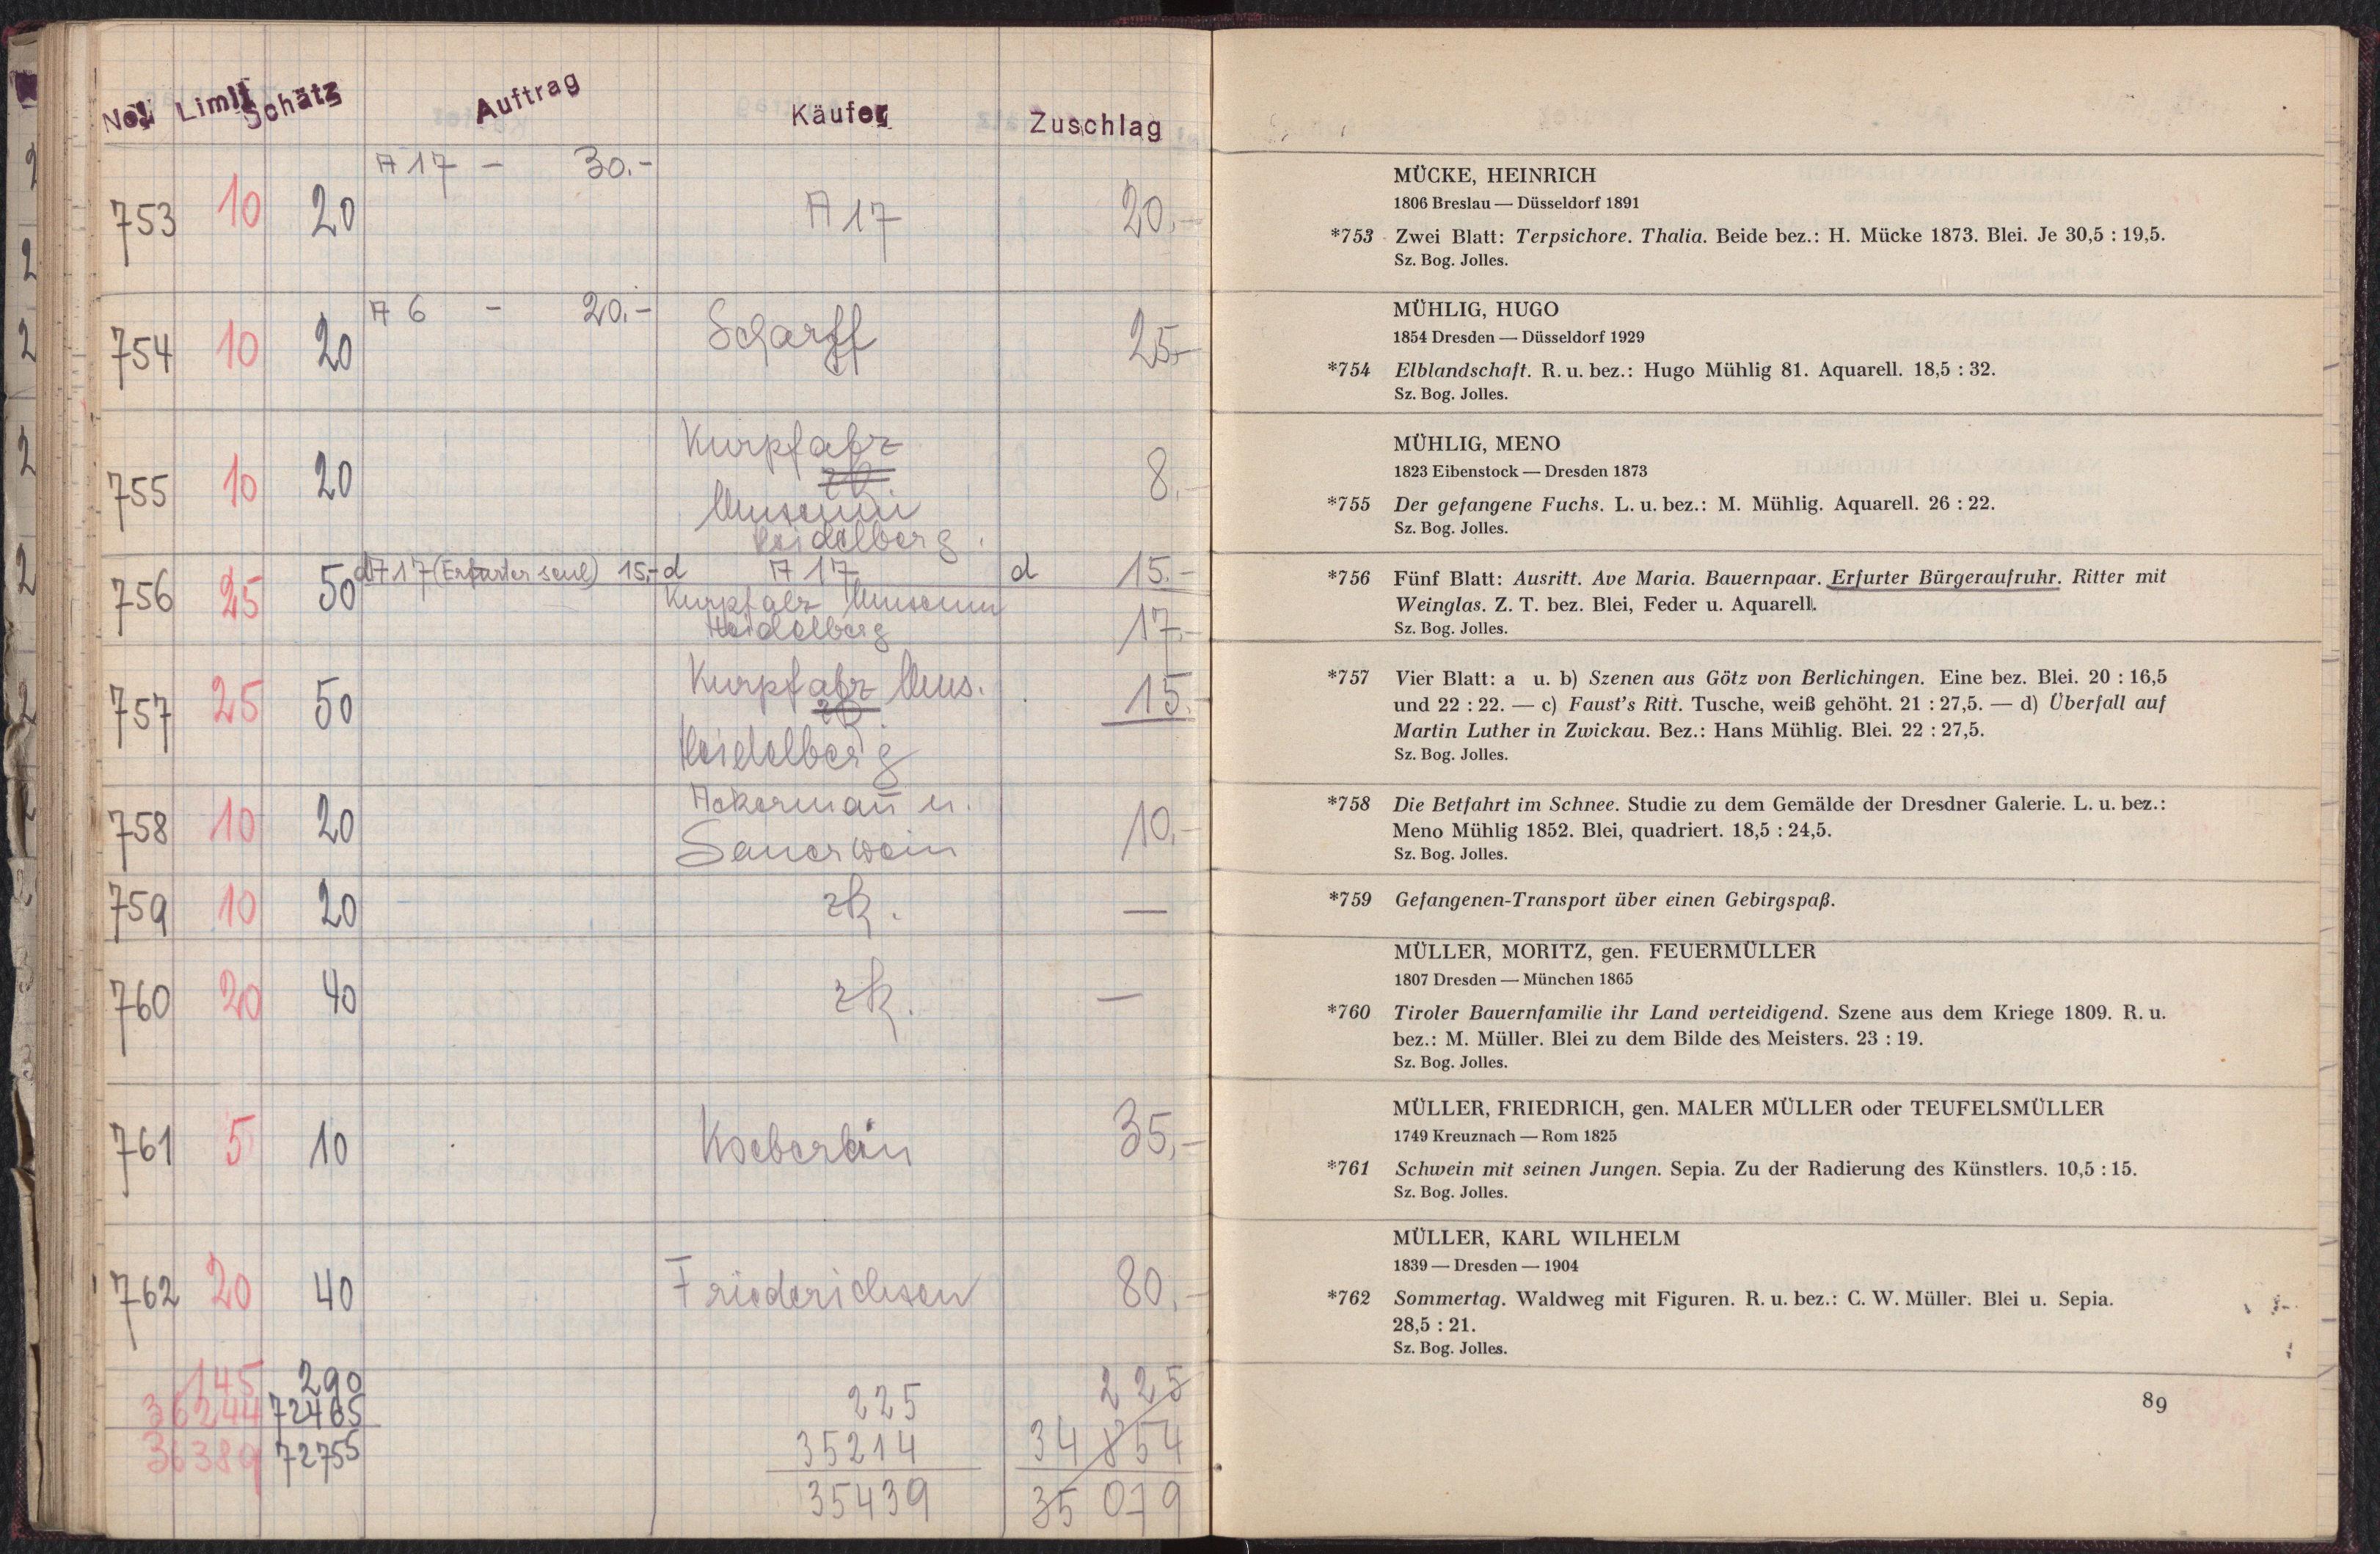 No. Limit Schätz Auftrag Käufer Zuschlag
A 17 - 30.-
753 10 20 A 17 20.-
A 6 - 20.-
754 10 20 Scharff 25.-
755 10 20 Kurpfalz 8.-
zk
Museum
Heidelberg.
756 25 50 d A 17 (Erfurter 15.- d A 17 d 15.-
Kurpfalz Museum
Heidelberg 17.-
757 25 50 Kurpfalz Mus. 15.-
zk
Heidelberg
758 10 20 Ackermañ u. 10.-
Sauerwein
759 10 20 zk. —
760 20 40 zk. —
761 5 10 Koeberlin 35.-
762 20 40 Friederichsen 80.-
145 290 225 225
36244 72465 35214 34854
36389 72755 35439 35079
MÜCKE, HEINRICH
1806 Breslau — Düsseldorf 1891
*753 Zwei Blatt: Terpsichore. Thalia. Beide bez.: H. Mücke 1873. Blei. Je 30,5 : 19,5.
Sz. Bog. Jolles.
MÜHLIG, HUGO
1854 Dresden — Düsseldorf 1929
*754 Elblandschaft. R. u. bez.: Hugo Mühlig 81. Aquarell. 18,5 : 32.
Sz. Bog. Jolles.
MÜHLIG, MENO
1823 Eibenstock — Dresden 1873
*755 Der gefangene Fuchs. L. u. bez.: M. Mühlig. Aquarell. 26 : 22.
Sz. Bog. Jolles.
*756 Fünf Blatt: Ausritt. Ave Maria. Bauernpaar. Erfurter Bürgeraufruhr. Ritter mit
Weinglas. Z. T. bez. Blei, Feder u. Aquarell.
Sz. Bog. Jolles.
*757 Vier Blatt: a u. b) Szenen aus Götz von Berlichingen. Eine bez. Blei. 20 : 16,5
und 22 : 22. — c) Faust's Ritt. Tusche, weiß gehöht. 21 : 27,5. — d) Überfall auf
Martin Luther in Zwickau. Bez.: Hans Mühlig. Blei. 22 : 27,5.
Sz. Bog. Jolles.
*758 Die Betfahrt im Schnee. Studie zu dem Gemälde der Dresdner Galerie. L. u. bez.:
Meno Mühlig 1852. Blei, quadriert. 18,5 : 24,5.
Sz. Bog. Jolles.
*759 Gefangenen-Transport über einen Gebirgspaß.
MÜLLER, MORITZ, gen. FEUERMÜLLER
1807 Dresden — München 1865
*760 Tiroler Bauernfamilie ihr Land verteidigend. Szene aus dem Kriege 1809. R. u.
bez.: M. Müller. Blei zu dem Bilde des Meisters. 23 : 19.
Sz. Bog. Jolles.
MÜLLER, FRIEDRICH, gen. MALER MÜLLER oder TEUFELSMÜLLER
1749 Kreuznach — Rom 1825
*761 Schwein mit seinen Jungen. Sepia. Zu der Radierung des Künstlers. 10,5 : 15.
Sz. Bog. Jolles.
MÜLLER, KARL WILHELM
1839 — Dresden — 1904
*762 Sommertag. Waldweg mit Figuren. R. u. bez.: C. W. Müller. Blei u. Sepia.
28,5 : 21.
Sz. Bog. Jolles.
89